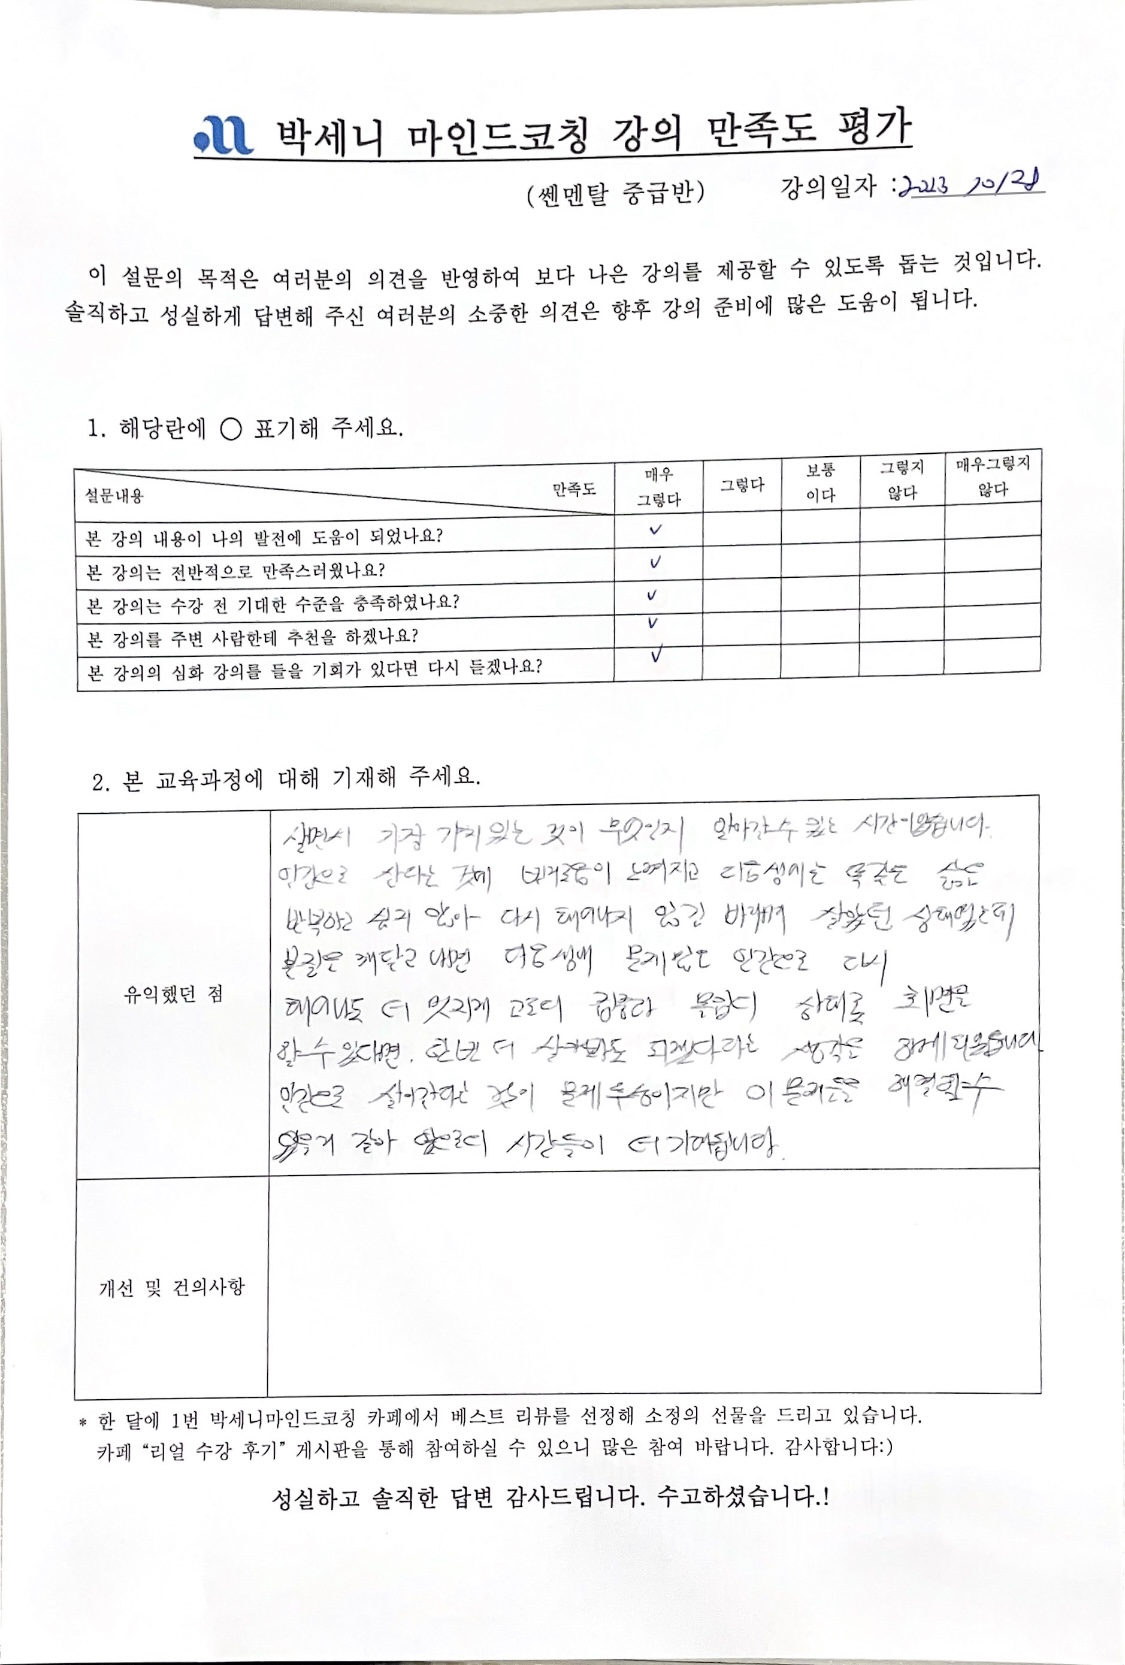 박세니 마인드코칭 강의 만족도 평가
(쎈멘탈 중급반) 강의일자 : 2023 10/28
이 설문의 목적은 여러분의 의견을 반영하여 보다 나은 강의를 제공할 수 있도록 돕는 것입니다.
솔직하고 성실하게 답변해 주신 여러분의 소중한 의견은 향후 강의 준비에 많은 도움이 됩니다.
1. 해당란에 ○ 표기해 주세요.
설문내용 만족도 매우 그렇다 그렇다 보통이다 그렇지 않다 매우그렇지 않다
본 강의 내용이 나의 발전에 도움이 되었나요? ✓
본 강의는 전반적으로 만족스러웠나요? ✓
본 강의는 수강 전 기대한 수준을 충족하였나요? ✓
본 강의를 주변 사람한테 추천을 하겠나요? ✓
본 강의의 심화 강의를 들을 기회가 있다면 다시 듣겠나요? ✓
2. 본 교육과정에 대해 기재해 주세요.
유익했던 점
살면서 가장 가치있는 것이 무엇인지 알아갈수 있는 시간이었습니다.
인간으로 산다는 것에 버거움이 느껴지고 다음생에는 똑같은 삶은
반복하고 싶지 않아 다시 태어나지 않길 바라며 살았던 상태였는데
본질을 깨닫고 나면 다음생에 문제없는 인간으로 다시
태어나도 더 멋지게 상태로
할 수 있다면. 한번 더 살아봐도 되겠다라는 생각을 하게 되었습니다
인간으로 살아간다는 것이 문제투성이지만 이 문제들을 해결할 수
있을거 같아 앞으로의 시간들이 더 기대됩니다.
개선 및 건의사항
* 한 달에 1번 박세니마인드코칭 카페에서 베스트 리뷰를 선정해 소정의 선물을 드리고 있습니다.
카페 “리얼 수강 후기” 게시판을 통해 참여하실 수 있으니 많은 참여 바랍니다. 감사합니다:)
성실하고 솔직한 답변 감사드립니다. 수고하셨습니다.!